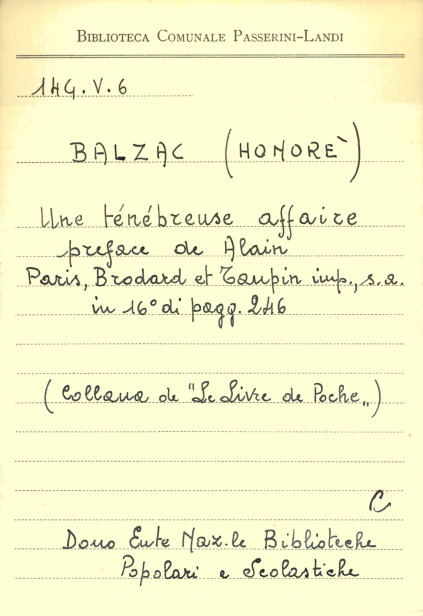 BIBLIOTECA COMUNALE PASSERINI-LANDI
14G.V.6
BALZAC (HONORÈ)
Une ténébreuse affaire
preface de Alain
Paris, Brodard et Taupin imp., s.a.
in 16° di pagg. 246
(Collana de "Le Livre de Poche„)
C
Dono Ente Naz.le Biblioteche
Popolari e Scolastiche